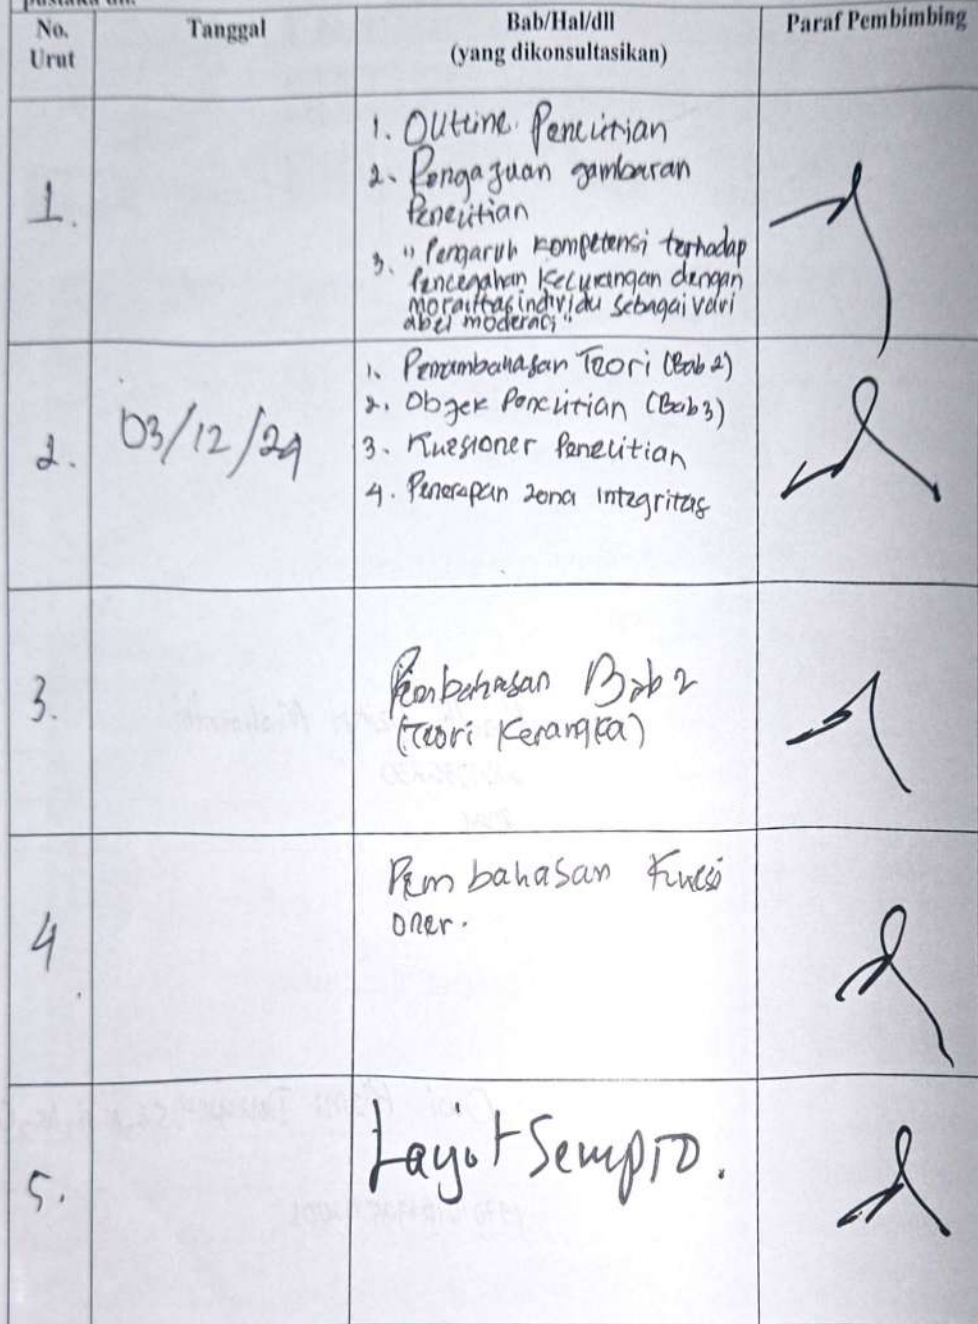 No.
Urut
Tanggal
Bab/Hal/dll
(yang dikonsultasikan)
Paraf Pembimbing
1.
1. Outline Penelitian
2. Pengajuan gambaran
Penelitian
3. "Pengaruh kompetensi terhadap
Pencegahan Kecurangan dengan
moralitas individu sebagai vari
abel moderasi"
2.
03/12/24
1. Penambahasan Teori (Bab 2)
2. Objek Penelitian (Bab 3)
3. Kuesioner Penelitian
4. Penerapan zona integritas
3.
Pembahasan Bab 2
(Teori Kerangka)
4
Pembahasan Kuesi
oner.
5.
Layut Sempro.